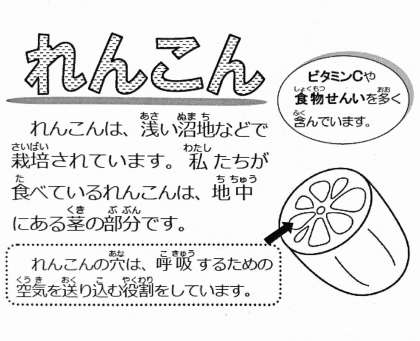 れんこん
ビタミンCや
食物せんいを多く
含んでいます。
れんこんは、浅い沼地などで
栽培されています。私たちが
食べているれんこんは、地中
にある茎の部分です。
れんこんの穴は、呼吸するための
空気を送り込む役割をしています。